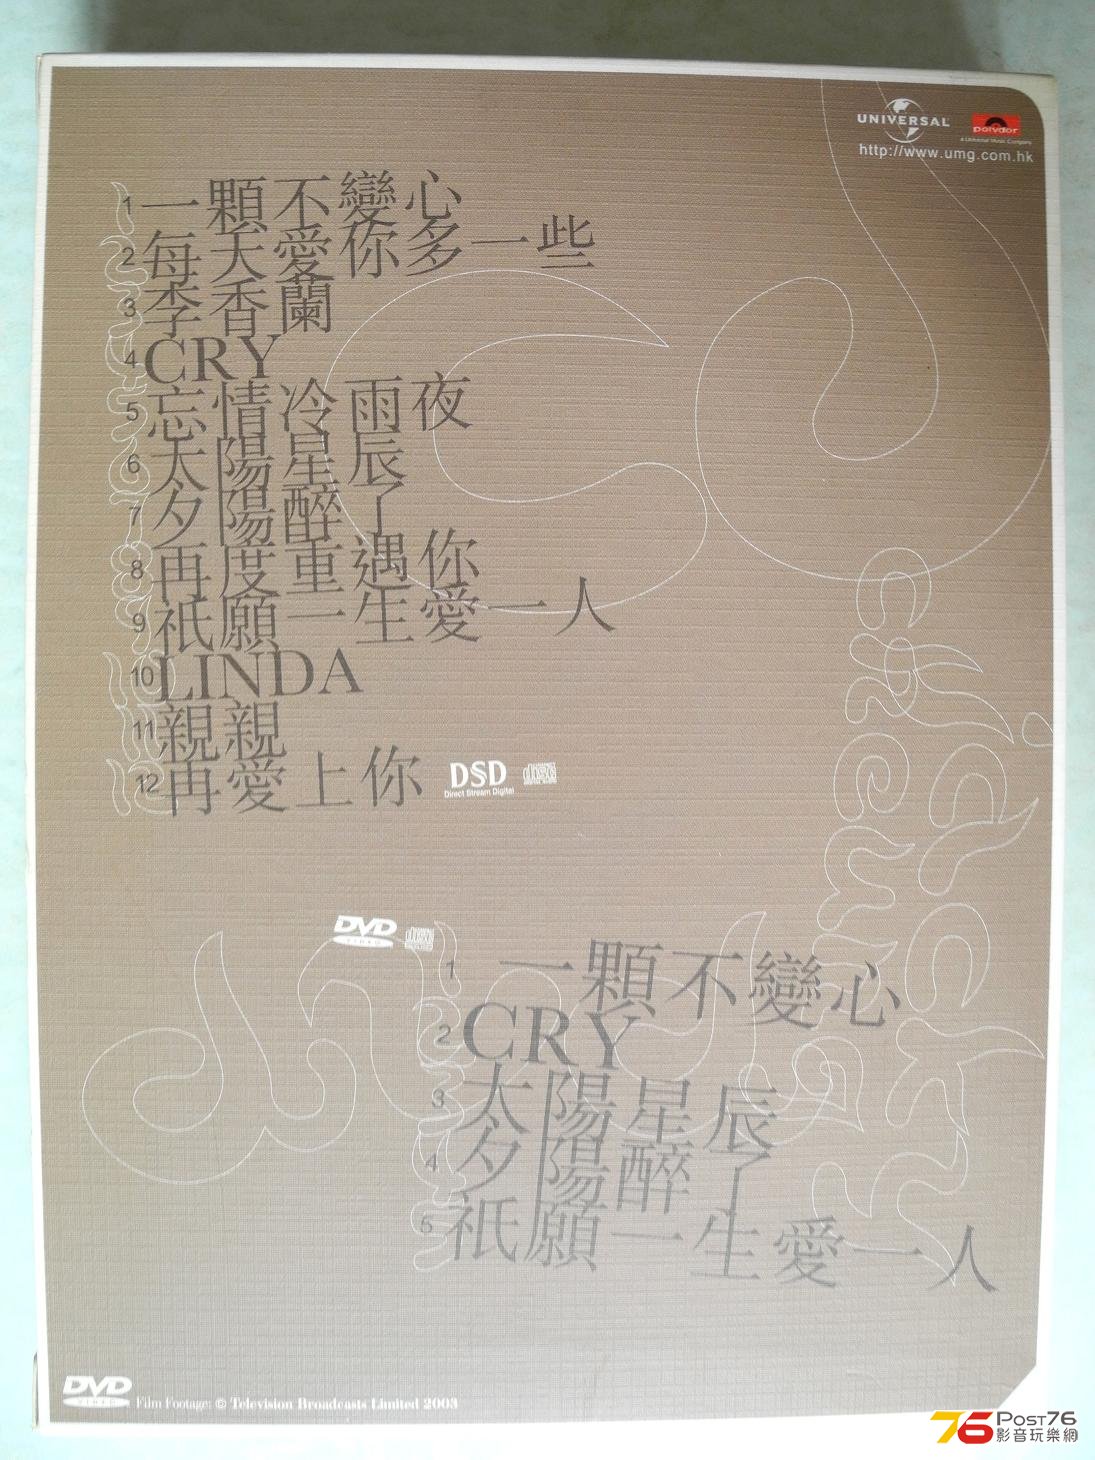 UNIVERSAL
polydor
a Universal Music Company
http://www.umg.com.hk
1 一顆不變心
2 每天愛你多一些
3 李香蘭
4 CRY
5 忘情冷雨夜
6 太陽星辰
7 夕陽醉了
8 再度重遇你
9 祇願一生愛一人
10 LINDA
11 親親
12 再愛上你
DSD
Direct Stream Digital
DVD
VIDEO
1 一顆不變心
2 CRY
3 太陽星辰
4 夕陽醉了
5 祇願一生愛一人
DVD
VIDEO
Film Footage: © Television Broadcasts Limited 2003
76 Post76
影音玩樂網